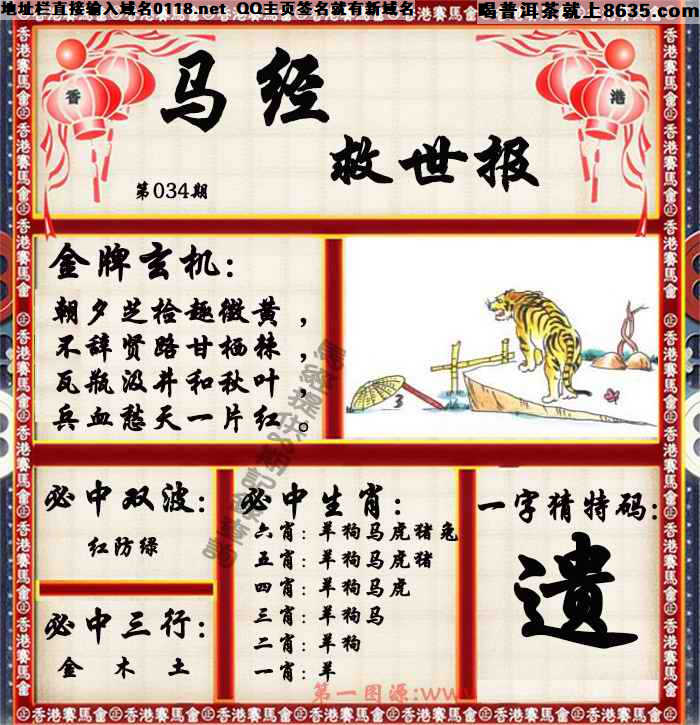 地址栏直接输入域名0118.net QQ主页签名就有新域名
喝普洱茶就上8635.com
香
港
马经
救世报
第034期
金牌玄机:
朝夕芝拾趣微黄,
不辞贤路甘栖棘,
瓦瓶汲井和秋叶,
兵血愁天一片红。
3
必中双波:
红防绿
必中三行:
金 木 土
必中生肖:
六肖:羊狗马虎猪兔
五肖:羊狗马虎猪
四肖:羊狗马虎
三肖:羊狗马
二肖:羊狗
一肖:羊
一字猜特码:
遗
第一图源:www
香港赛馬會